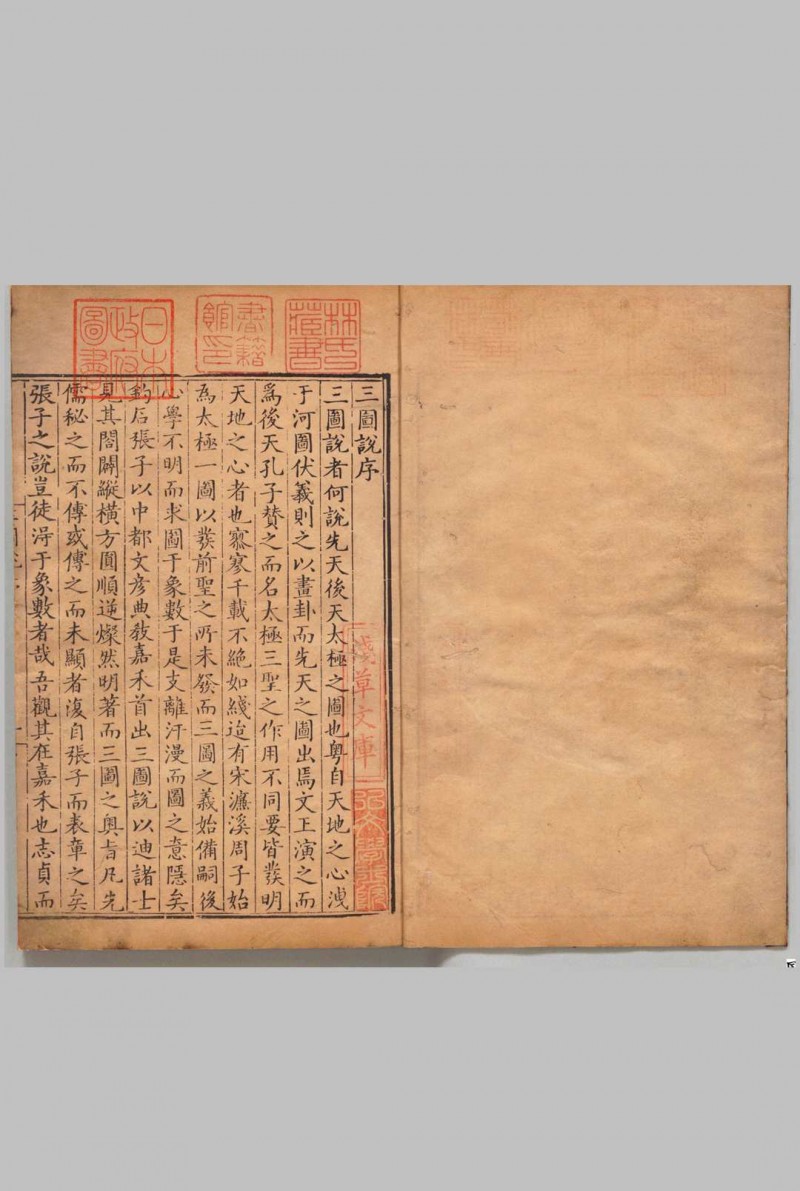 三圖說序
三圖說者何說先天後天太極之圖也粤自天地之心洩
于河圖伏羲則之以畫卦而先天之圖出焉文王演之而
爲後天孔子賛之而名太極三聖之作用不同要皆發明
天地之心者也寥寥千載不絶如綫迨有宋濂溪周子始
為太極一圖以發前聖之所未發而三圖之義始備嗣後
心學不明而求圖于象數于是支離汗漫而圖之意隱矣
鈞石張子以中都文彦典敎嘉禾首出三圖說以迪諸士
見其闔闢縱橫方圓順逆燦然明著而三圖之奥旨凡先
儒秘之而不傳或傳之而未顯者復自張子而表章之矣
張子之說豈徒淂于象數者哉吾觀其在嘉禾也志貞而
林氏藏書
書籍館印
日本政府圖書
淺草文庫
弘文學士館